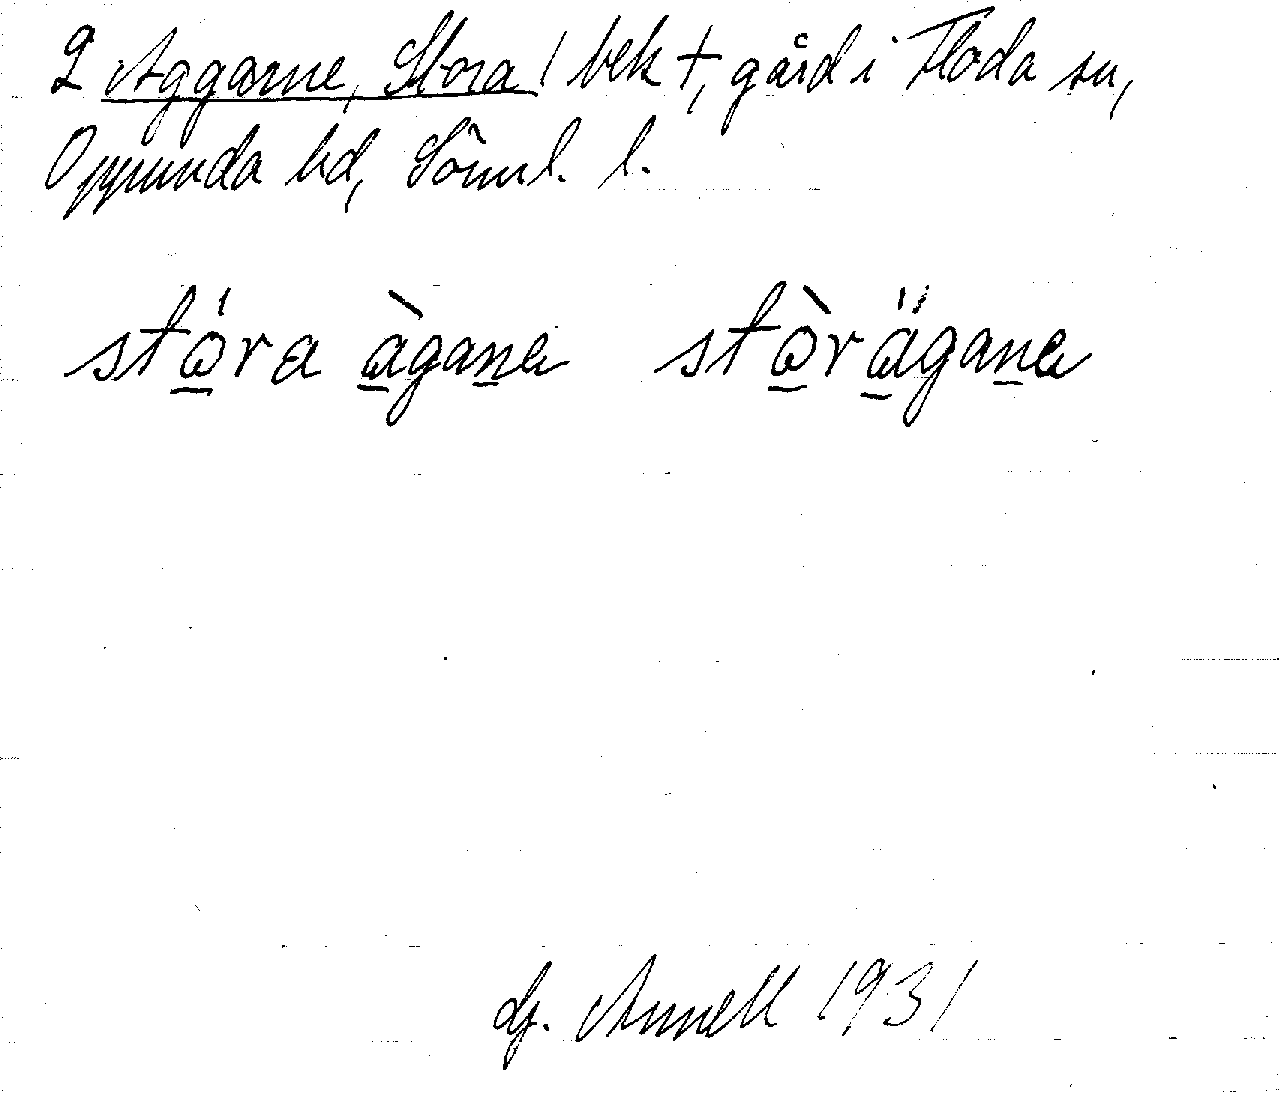 2 Aggarne, Stora! bek +, gård i Floda sn,
Oppunda hd, Söml. l.
stó̲ra à̲gan̲e stò̲ra̲̋gan̲e
Lg. Annell 1931